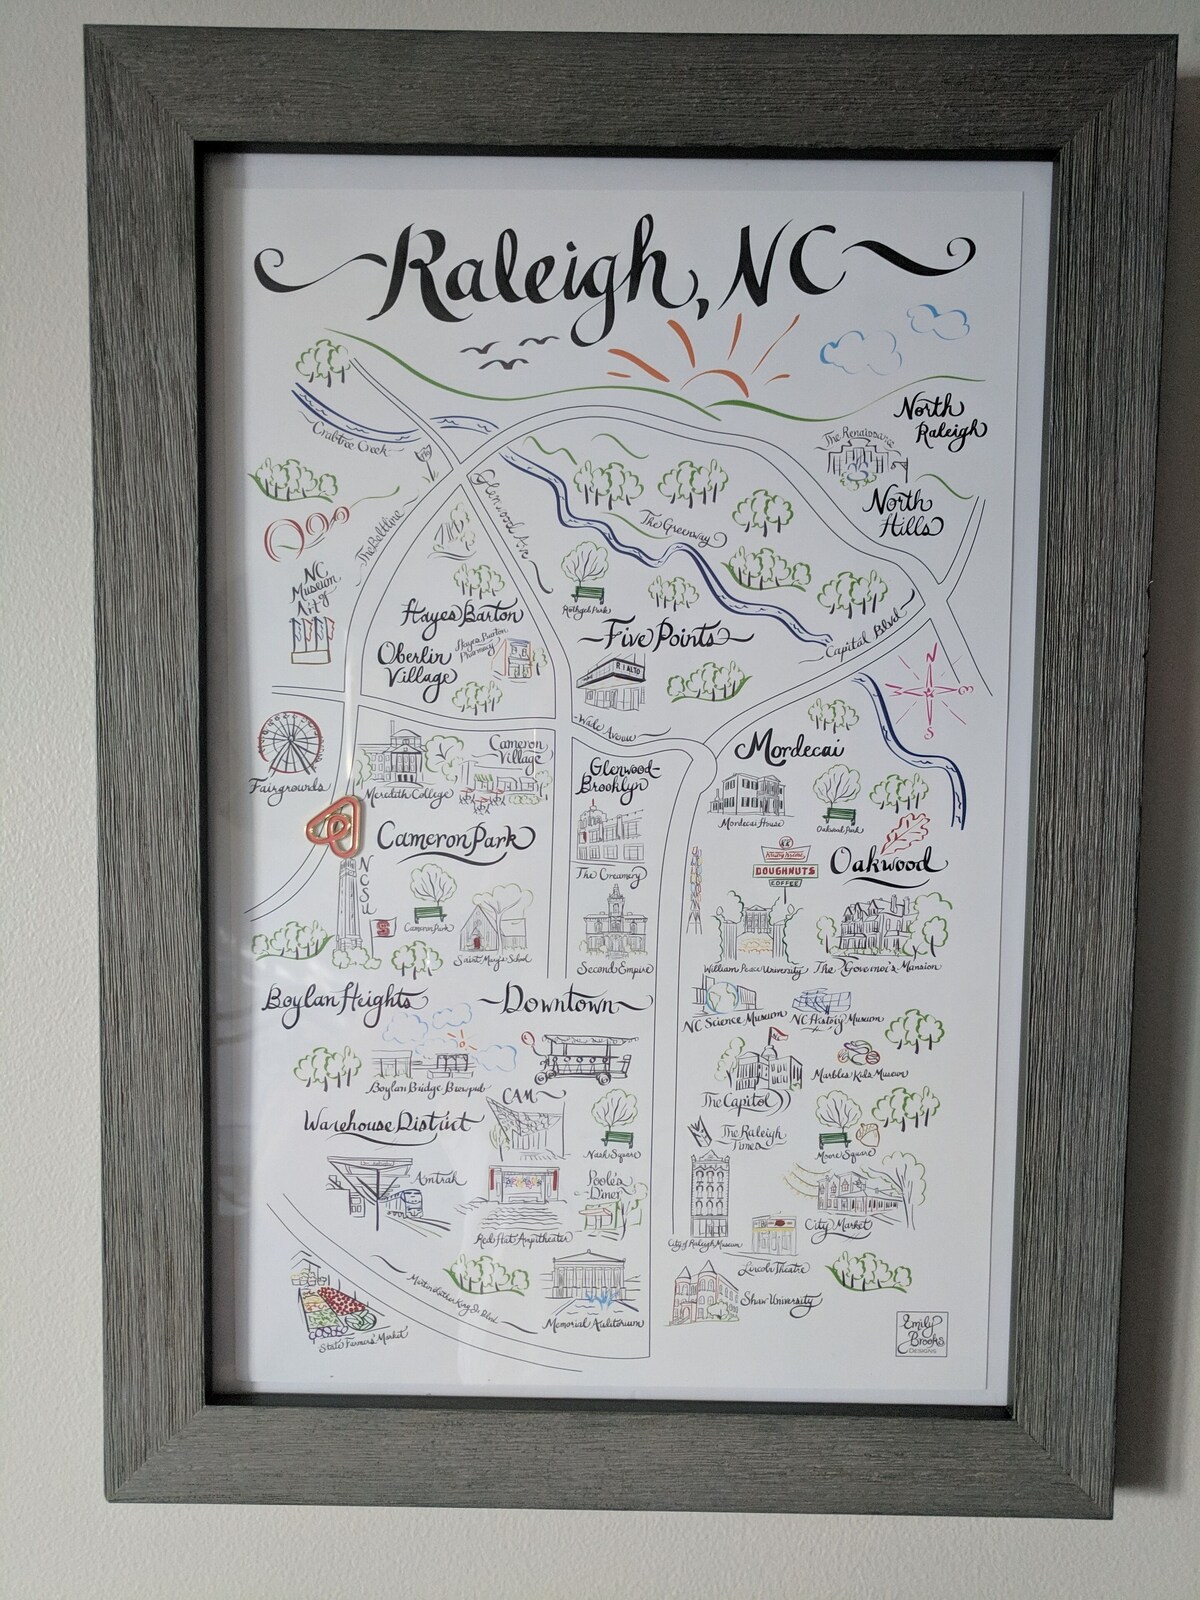 Raleigh, NC
North
Raleigh
The Renaissance
Crabtree Creek
North
Hills
Glenwood Ave
The Beltline
The Greenway
NC
Museum
of
Art
Hayes Barton
Fletcher Park
Five Points
Capital Blvd
Oberlin
Village
Hayes Barton
Pharmacy
RIALTO
N
E
S
W
Wade Avenue
Mordecai
Fairgrounds
Meredith College
Cameron
Village
Glenwood-
Brooklyn
Mordecai House
Oakwood Park
Cameron Park
The Creamery
Krispy Kreme
DOUGHNUTS
COFFEE
Oakwood
NCSU
S
Cameron Park
Saint Mary's School
Second Empire
William Peace University
The Governor's Mansion
Boylan Heights
Downtown
NC Science Museum
NC History Museum
Boylan Bridge Brewpub
The Capitol
Marbles Kids Museum
CAM
Warehouse District
Nash Square
The Raleigh
Times
Moore Square
Amtrak
Red Hat Ampitheater
Poole's
Diner
City of Raleigh Museum
City Market
Lincoln Theatre
Martin Luther King Jr. Blvd
Memorial Auditorium
Shaw University
State Farmers' Market
Emily
Brooks
DESIGNS